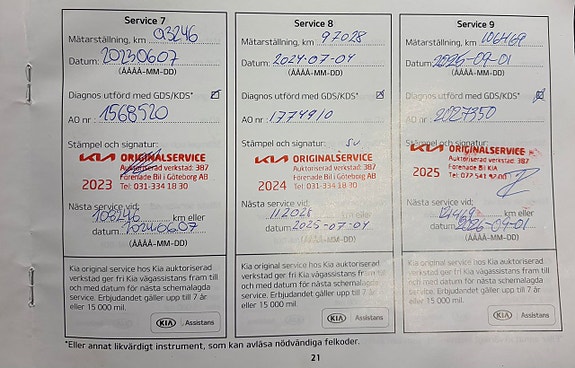 Service 7
Mätarställning, km 93246
Datum: 20230607
(ÅÅÅÅ-MM-DD)
Diagnos utförd med GDS/KDS*
AO nr: 1568520
Stämpel och signatur:
KIA ORIGINALSERVICE
Auktoriserad verkstad: 387
2023 Förenade Bil i Göteborg AB
Tel: 031-334 18 30
Nästa service vid:
103246 km eller
datum 20240607
(ÅÅÅÅ-MM-DD)
Kia original service hos Kia auktoriserad
verkstad ger fri Kia vägassistans fram till
och med datum för nästa schemalagda
service. Erbjudandet gäller upp till 7 år
eller 15 000 mil.
KIA Assistans
Service 8
Mätarställning, km 97028
Datum: 2024-07-04
(ÅÅÅÅ-MM-DD)
Diagnos utförd med GDS/KDS*
AO nr: 1774910
Stämpel och signatur:
KIA ORIGINALSERVICE
Auktoriserad verkstad: 387
2024 Förenade Bil i Göteborg AB
Tel: 031-334 18 30
Nästa service vid:
112028 km eller
datum 2025-07-04
(ÅÅÅÅ-MM-DD)
Kia original service hos Kia auktoriserad
verkstad ger fri Kia vägassistans fram till
och med datum för nästa schemalagda
service. Erbjudandet gäller upp till 7 år
eller 15 000 mil.
KIA Assistans
Service 9
Mätarställning, km 106469
Datum: 2025-09-01
(ÅÅÅÅ-MM-DD)
Diagnos utförd med GDS/KDS*
AO nr: 2027350
Stämpel och signatur:
KIA ORIGINALSERVICE
Auktoriserad verkstad: 387
2025 Förenade Bil KIA
Nästa service vid:
km eller
datum 2026-09-01
(ÅÅÅÅ-MM-DD)
Kia original service hos Kia auktoriserad
verkstad ger fri Kia vägassistans fram till
och med datum för nästa schemalagda
service. Erbjudandet gäller upp till 7 år
eller 15 000 mil.
KIA Assistans
*Eller annat likvärdigt instrument, som kan avläsa nödvändiga felkoder.
21